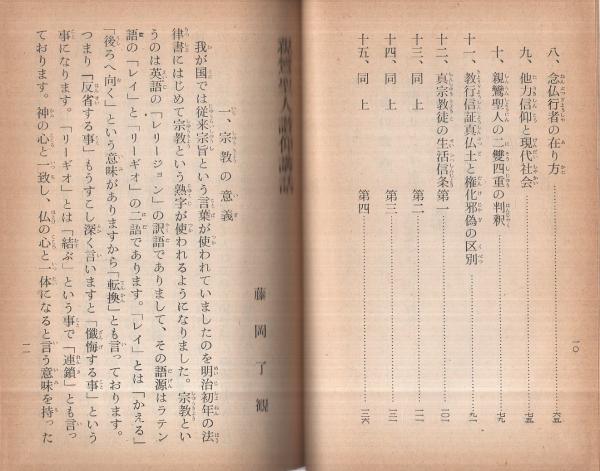 八、念仏行者の在り方……六五
九、他力信仰と現代社会……七五
十、親鸞聖人の二雙四重の判釈……七九
十一、教行信証真仏土と権化邪偽の区別……九一
十二、真宗教徒の生活信条第一……一〇一
十三、同 上 第二……一一一
十四、同 上 第三……一二一
十五、同 上 第四……一三六
一〇
親鸞聖人讃仰講話
藤岡了観
一、宗教の意義
我が国では従来宗旨という言葉が使われていましたのを明治初年の法
律書にはじめて宗教という熟字が使われるようになりました。宗教とい
うのは英語の「レリージョン」の訳語でありまして、その語源はラテン
語の「レイ」と「リーギオ」の二語であります。「レイ」とは「かえる」
「後ろへ向く」という意味がありますから「転換」とも言っております。
つまり「反省する事」もうすこし深く言いますと「懺悔する事」という
事になります。「リーギオ」とは「結ぶ」という事で「連鎖」とも言っ
ております。神の心と一致し、仏の心と一体になると言う意味を持った
一一